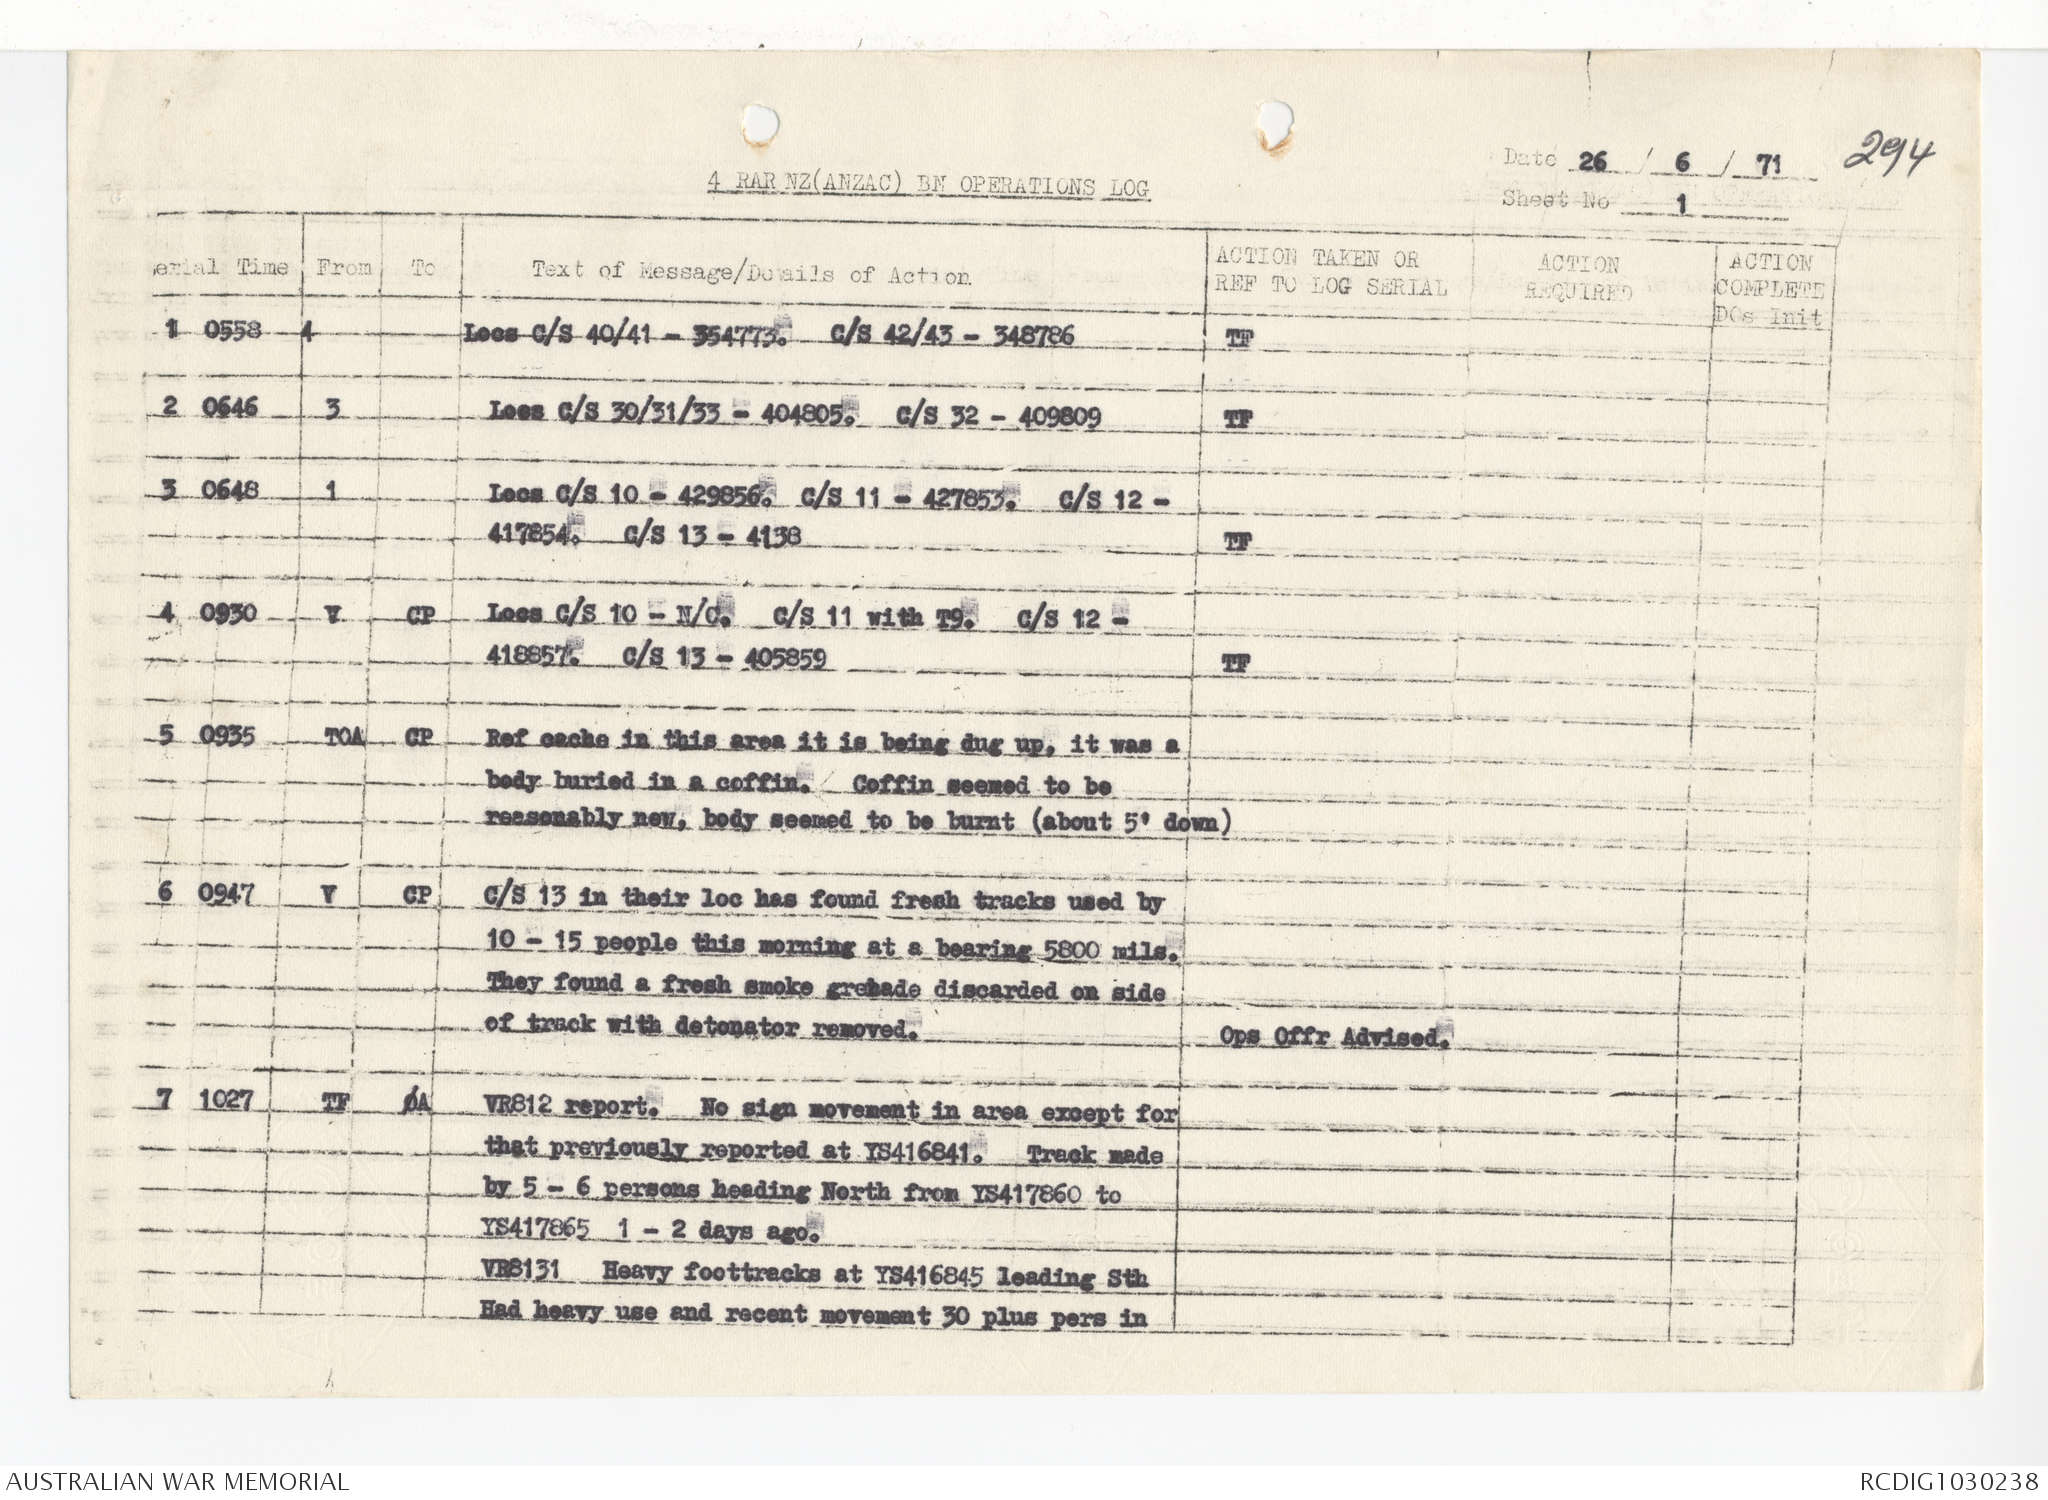 294
Date 26 / 6 / 71
4 RAR NZ(ANZAC) BN OPERATIONS LOG
Sheet No 1
erial Time From To Text of Message/Details of Action ACTION TAKEN OR REF TO LOG SERIAL ACTION REQUIRED ACTION COMPLETE DOs Init
1 0558 4 Locs C/S 40/41 - 354773. C/S 42/43 - 348786 TF
2 0646 3 Locs C/S 30/31/33 - 404805. C/S 32 - 409809 TF
3 0648 1 Locs C/S 10 - 429856. C/S 11 - 427853. C/S 12 -
417854. C/S 13 - 4138 TF
4 0930 V CP Locs C/S 10 - N/C. C/S 11 with T9. C/S 12 -
418857. C/S 13 - 405859 TF
5 0935 TOA CP Ref cache in this area it is being dug up, it was a
body buried in a coffin. Coffin seemed to be
reasonably new, body seemed to be burnt (about 5' down)
6 0947 V CP C/S 13 in their loc has found fresh tracks used by
10 - 15 people this morning at a bearing 5800 mils.
They found a fresh smoke grenade discarded on side
of track with detonator removed. Ops Offr Advised.
7 1027 TF ØA VR812 report. No sign movement in area except for
that previously reported at YS416841. Track made
by 5 - 6 persons heading North from YS417860 to
YS417865 1 - 2 days ago.
VR8131 Heavy foottracks at YS416845 leading Sth
Had heavy use and recent movement 30 plus pers in
AUSTRALIAN WAR MEMORIAL RCDIG1030238